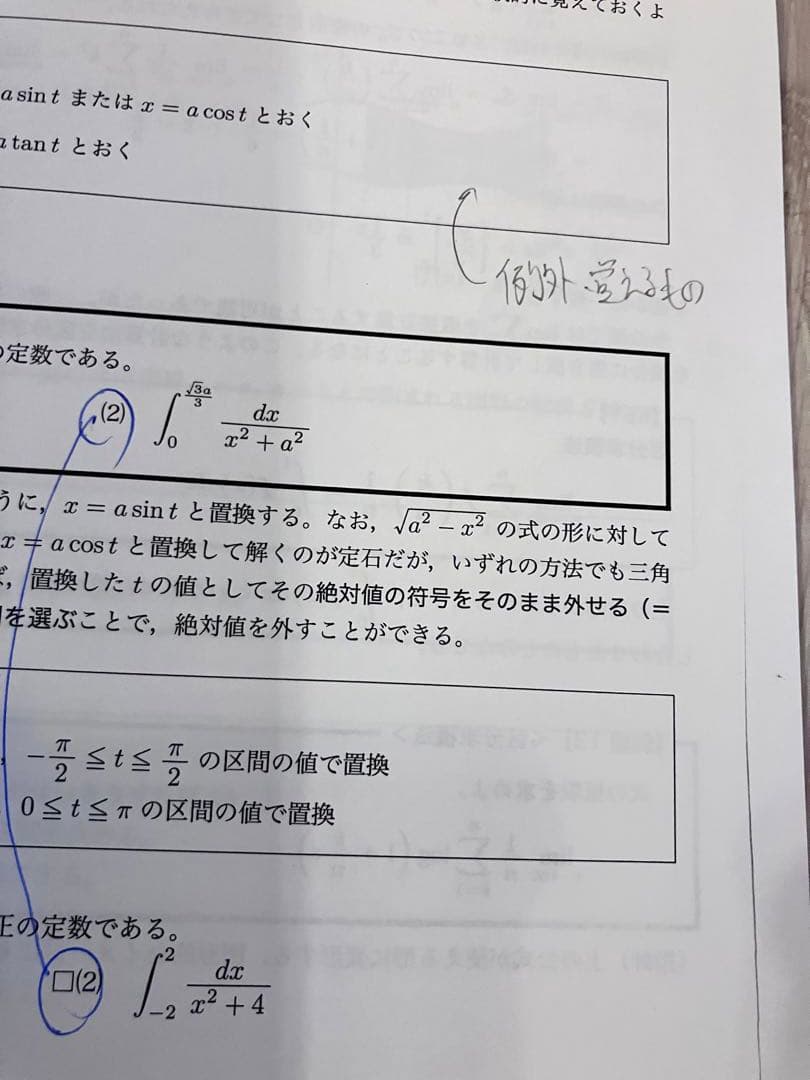 に覚えておくよ
a sin t または x = a cos t とおく
a tan t とおく
例外 覚えるもの
の定数である。
(2) ∫_0^{√3a/3} dx/(x²+a²)
うに，x = a sin t と置換する。なお，√(a²−x²) の式の形に対して
x = a cos t と置換して解くのが定石だが，いずれの方法でも三角
ば，置換した t の値としてその絶対値の符号をそのまま外せる（=
を選ぶことで，絶対値を外すことができる。
，−π/2 ≦ t ≦ π/2 の区間の値で置換
0 ≦ t ≦ π の区間の値で置換
正の定数である。
□(2) ∫_{-2}^{2} dx/(x²+4)